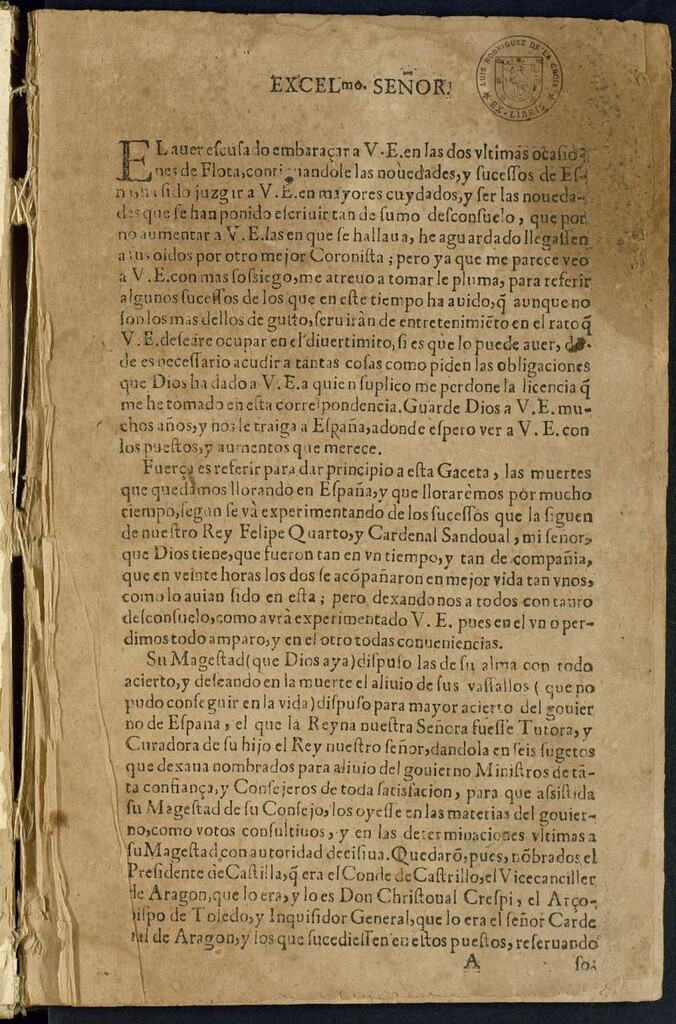 EXCEL.mo. SEÑOR.
LUIS RODRIGUEZ DE LA CROIX
★ EX-LIBRIS ★
EL auer escusado embaraçar a V.E. en las dos vltimas ocasio-
nes de Flota, continuandole las nouedades, y sucessos de Es-
sido juzgar a V.E. en mayores cuydados, y ser las noueda-
des que se han podido escriuir tan de sumo desconsuelo, que por
no aumentar a V.E. las en que se hallaua, he aguardado llegassen
a sus oidos por otro mejor Coronista; pero ya que me parece veo
a V.E. con mas sossiego, me atreuo a tomar le pluma, para referir
algunos sucessos de los que en este tiempo ha auido, q̃ aunque no
son los mas dellos de gusto, seruiràn de entretenimiẽto en el rato q̃
V.E. desseàre ocupar en el diuertimiẽto, si es que lo puede auer, dõ-
de es necessario acudir a tantas cosas como piden las obligaciones
que Dios ha dado a V.E. a quien suplico me perdone la licencia q̃
me he tomado en esta correspondencia. Guarde Dios a V.E. mu-
chos años, y nos le traiga a España, adonde espero ver a V.E. con
los puestos, y aumentos que merece.
Fuerça es referir para dar principio a esta Gaceta, las muertes
que quedamos llorando en España, y que llorarèmos por mucho
tiempo, segun se và experimentando de los sucessos que la siguen
de nuestro Rey Felipe Quarto, y Cardenal Sandoual, mi señor,
que Dios tiene, que fueron tan en vn tiempo, y tan de compañia,
que en veinte horas los dos se acõpañaron en mejor vida tan vnos,
como lo auian sido en esta; pero dexandonos a todos con tanto
desconsuelo, como avrà experimentado V.E. pues en el vno per-
dimos todo amparo, y en el otro todas conueniencias.
Su Magestad (que Dios aya) dispuso las de su alma con todo
acierto, y deseando en la muerte el aliuio de sus vassallos (que no
pudo conseguir en la vida) dispuso para mayor acierto del gouier
no de España, el que la Reyna nuestra Señora fuesse Tutora, y
Curadora de su hijo el Rey nuestro señor, dandola en seis sugetos
que dexaua nombrados para aliuio del gouierno Ministros de tã-
ta confiança, y Consejeros de toda satisfacion, para que assistida
su Magestad de su Consejo, los oyesse en las materias del gouier-
no, como votos consultiuos, y en las determinaciones vltimas a
su Magestad con autoridad decisiua. Quedarõ, pues, nõbrados, el
Presidente de Castilla, q̃ era el Conde de Castrillo, el Vicecanciller
de Aragon, que lo era, y lo es Don Christoual Crespi, el Arço-
bispo de Toledo, y Inquisidor General, que lo era el señor Carde
nal de Aragon, y los que sucediessen en estos puestos, reseruando
A so-